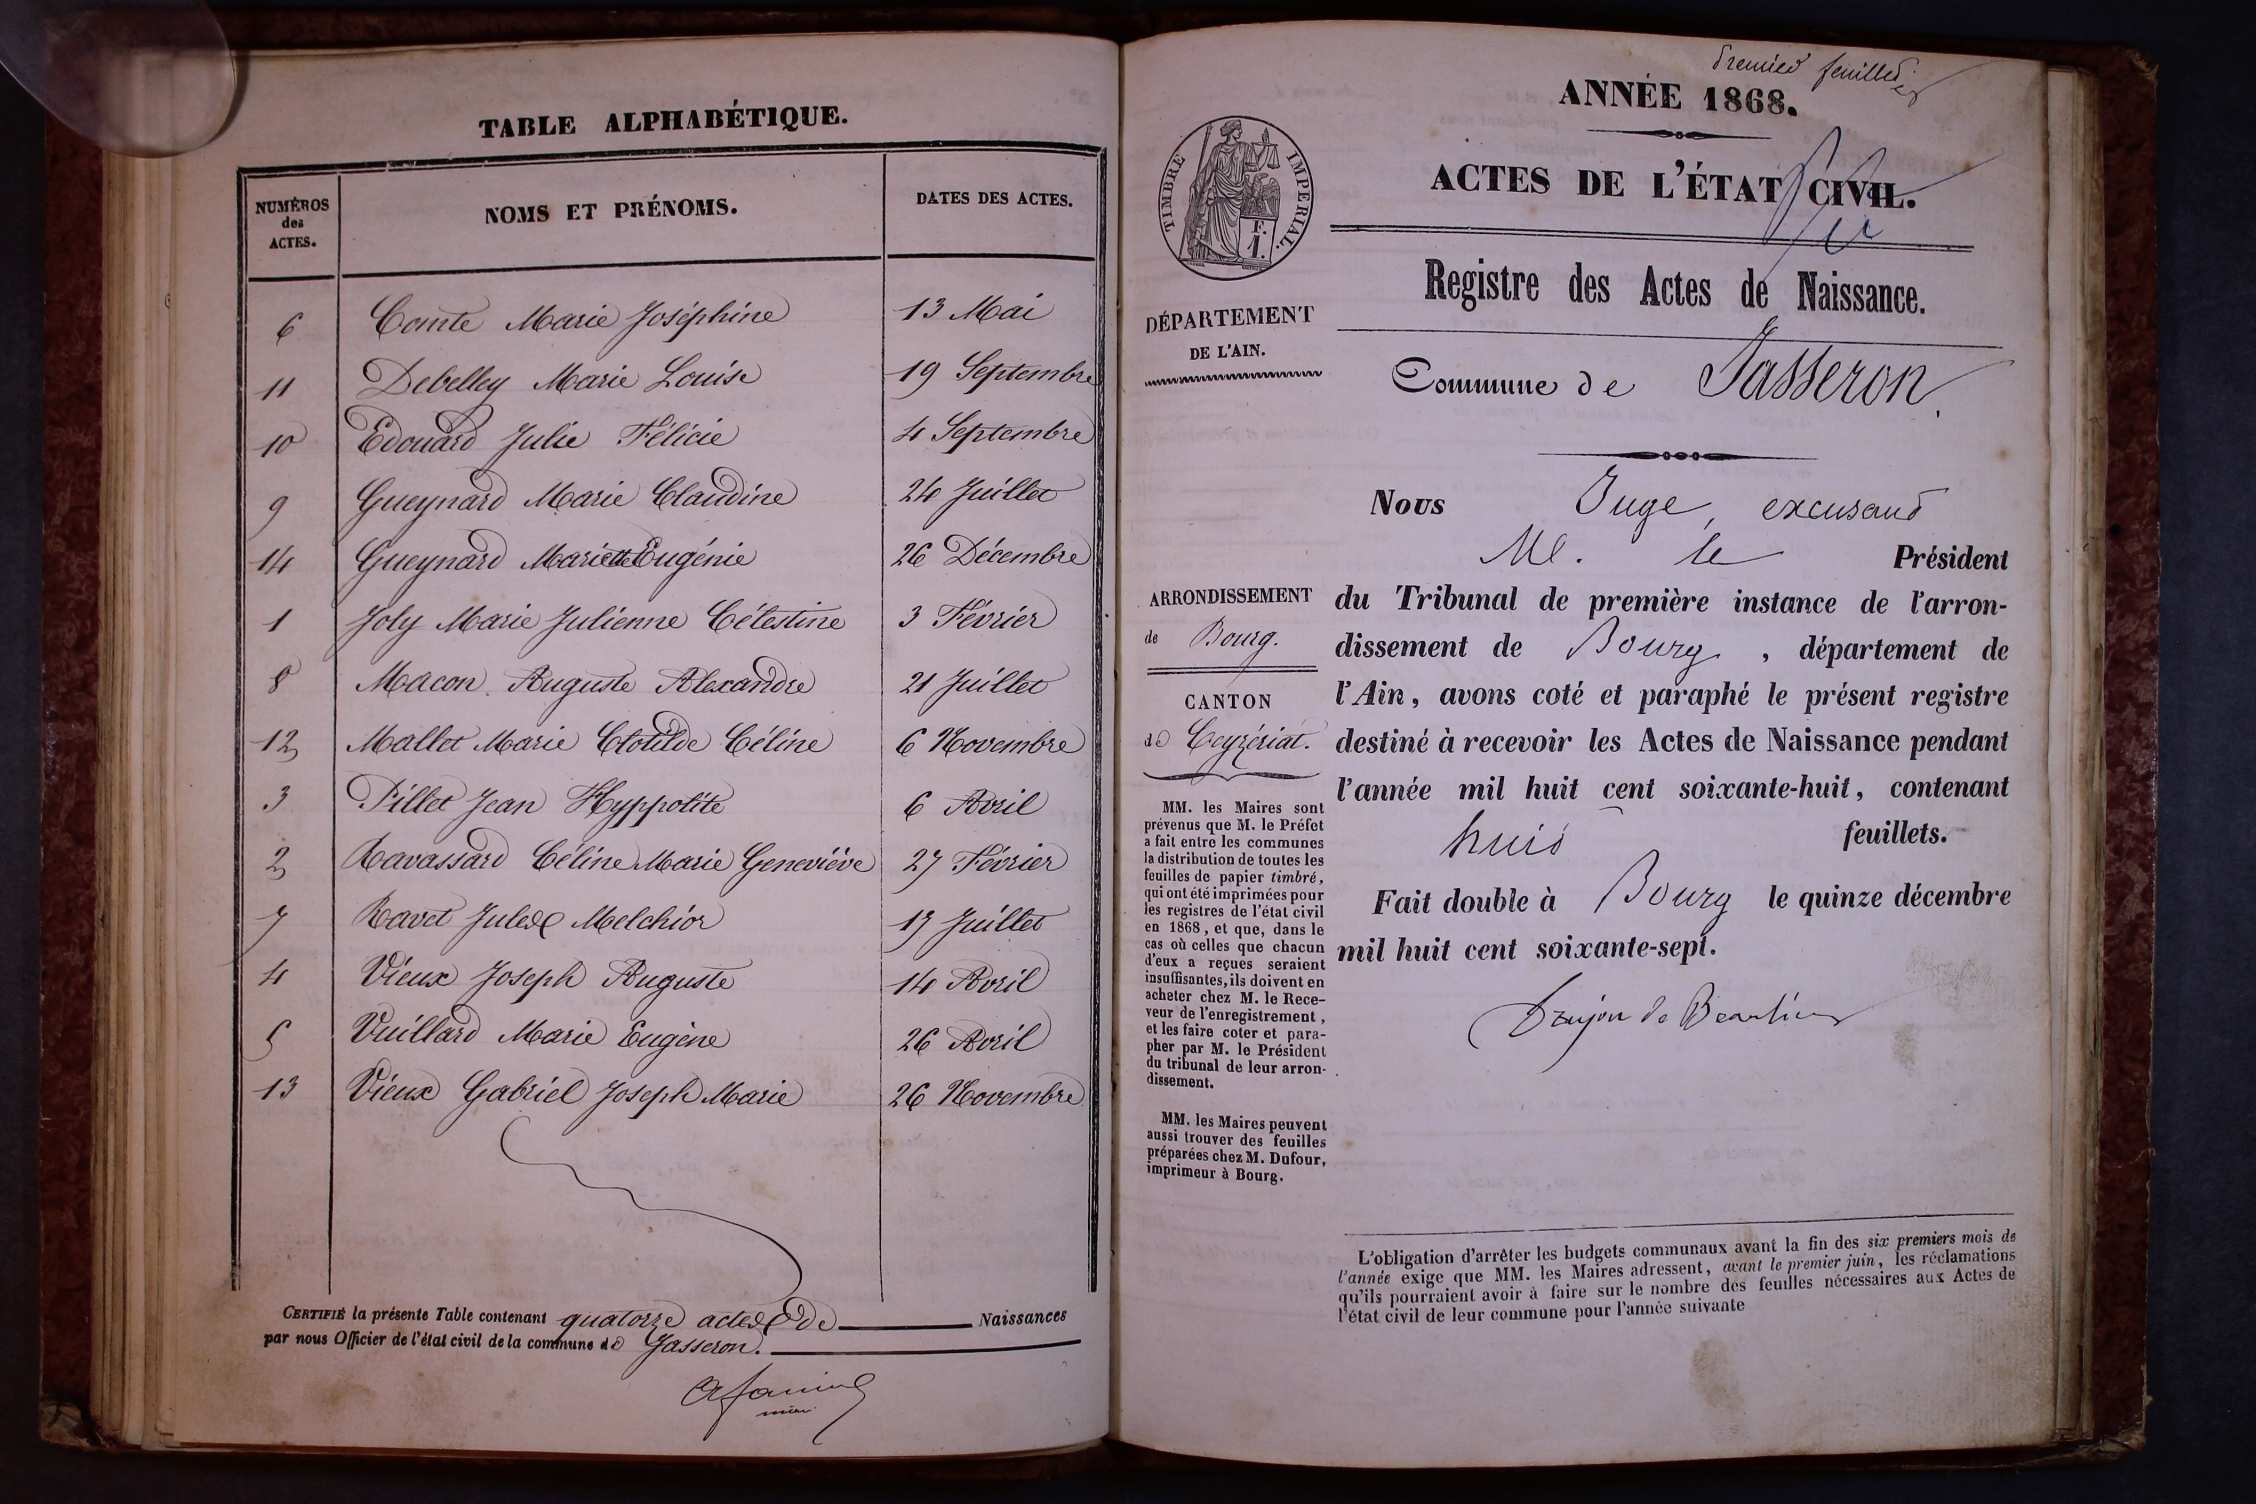 TABLE ALPHABÉTIQUE.
NUMÉROS des ACTES.
NOMS ET PRÉNOMS.
DATES DES ACTES.
6 Comte Marie Joséphine 13 Mai
11 Debelley Marie Louise 19 Septembre
10 Edouard Julie Félicie 4 Septembre
9 Gueynard Marie Claudine 24 Juillet
14 Gueynard Mariette Eugénie 26 Décembre
1 Joly Marie Julienne Célestine 3 Février
8 Macon Auguste Alexandre 21 Juillet
12 Mallet Marie Clotilde Céline 6 Novembre
3 Pillet Jean Hyppolite 6 Avril
2 Ravassard Céline Marie Geneviève 27 Février
7 Ravet Jules Melchior 17 Juillet
4 Vieux Joseph Auguste 14 Avril
5 Vuillard Marie Eugène 26 Avril
13 Vieux Gabriel Joseph Marie 26 Novembre
CERTIFIÉ la présente Table contenant quatorze actes de Naissances
par nous Officier de l'état civil de la commune de Jasseron.
Premier feuillet
ANNÉE 1868.
ACTES DE L'ÉTAT CIVIL.
TIMBRE IMPÉRIAL.
F.
1.
Registre des Actes de Naissance.
DÉPARTEMENT
DE L'AIN.
Commune de Jasseron.
Nous Juge, excusant
M. le Président
du Tribunal de première instance de l'arron-
dissement de Bourg, département de
l'Ain, avons coté et paraphé le présent registre
destiné à recevoir les Actes de Naissance pendant
l'année mil huit cent soixante-huit, contenant
huit feuillets.
Fait double à Bourg le quinze décembre
mil huit cent soixante-sept.
ARRONDISSEMENT
de Bourg.
CANTON
de Ceyzériat.
MM. les Maires sont
prévenus que M. le Préfet
a fait entre les communes
la distribution de toutes les
feuilles de papier timbré,
qui ont été imprimées pour
les registres de l'état civil
en 1868, et que, dans le
cas où celles que chacun
d'eux a reçues seraient
insuffisantes, ils doivent en
acheter chez M. le Rece-
veur de l'enregistrement,
et les faire coter et para-
pher par M. le Président
du tribunal de leur arron-
dissement.
MM. les Maires peuvent
aussi trouver des feuilles
préparées chez M. Dufour,
imprimeur à Bourg.
L'obligation d'arrêter les budgets communaux avant la fin des six premiers mois de
l'année exige que MM. les Maires adressent, avant le premier juin, les réclamations
qu'ils pourraient avoir à faire sur le nombre des feuilles nécessaires aux Actes de
l'état civil de leur commune pour l'année suivante